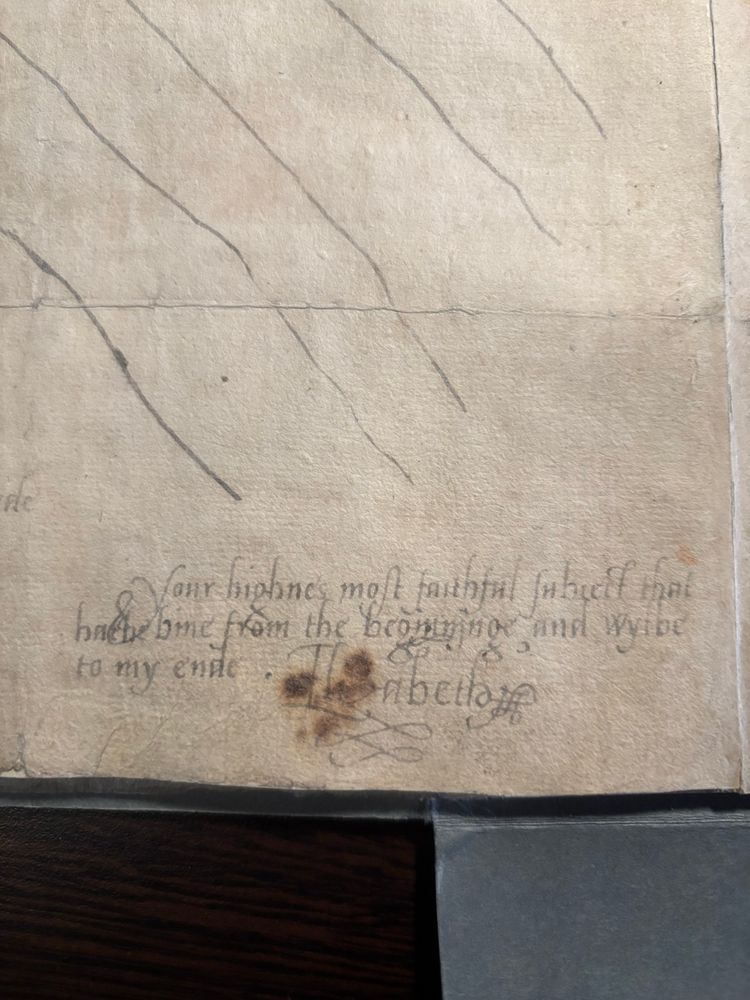 Your highnes most faithful subiect that
hathe bine from the beginninge and wylbe
to my ende . Elizabeth